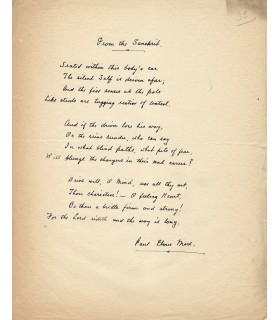 From the Sanskrit.
Seated within this body's car
The silent Self is driven afar;
And the five senses at the pole
Like steeds are tugging restive of control.
And if the driver lose his way,
Or the reins sunder, who can say
In what blind paths, what pits of fear
Will plunge the chargers in their mad career?
Drive well, O Mind, use all thy art,
Thou charioteer! — O feeling Heart,
Be thou a bridle firm and strong!
For the Lord rideth and the way is long.
Paul Elmer More.